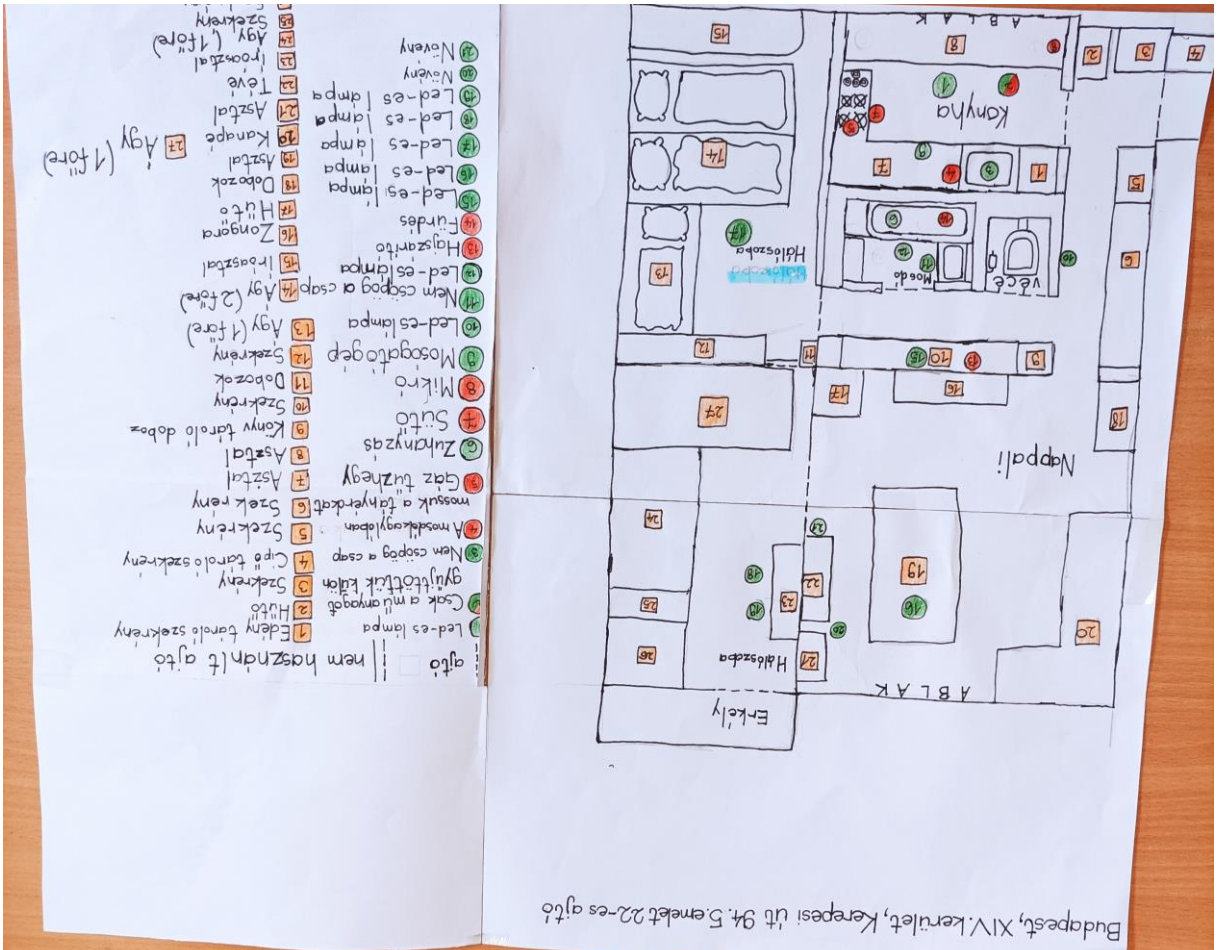 Budapest, XIV. kerület, Kerepesi út 94. 5.emelet 22-es ajtó
Erkély
ABLAK
Hálószoba
26
25
24
27
12
13
14
15
21
23
22
20
19
18
21
16
19
20
Nappali
17
16
11
15
10
13
9
18
Hálószoba
17
Mosdó
vécé
6
14
12
11
10
6
5
7
9
4
3
1
5
7
Konyha
1
2
8
8
ABLAK
2
3
4
ajtó
nem használt ajtó
1 Led-es lámpa
2 Csak a műanyagot
gyűjtöttük külön
3 Nem csöpög a csap
4 A mosdókagylóban
mossuk a tányérokat
5 Gáz tűzhegy
6 Zuhanyzás
7 Sütő
8 Mikró
9 Mosogatógép
10 Led-es lámpa
11 Nem csöpög a csap
12 Led-es lámpa
13 Hajszárító
14 Fürdés
15 Led-es lámpa
16 Led-es lámpa
17 Led-es lámpa
18 Led-es lámpa
19 Led-es lámpa
20 Növény
21 Növény
1 Edény tároló szekrény
2 Hűtő
3 Szekrény
4 Cipő tároló szekrény
5 Szekrény
6 Szekrény
7 Asztal
8 Asztal
9 Könyv tároló doboz
10 Szekrény
11 Dobozok
12 Szekrény
13 Ágy (1 főre)
14 Ágy (2 főre)
15 Íróasztal
16 Zongora
17 Hűtő
18 Dobozok
19 Asztal
20 Kanapé
21 Asztal
22 Tévé
23 Íróasztal
24 Ágy (1 főre)
25 Szekrény
27 Ágy (1 főre)